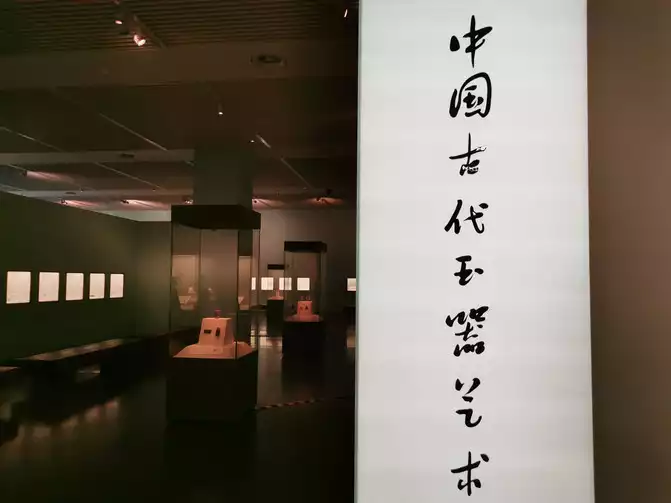 中国古代玉器艺术